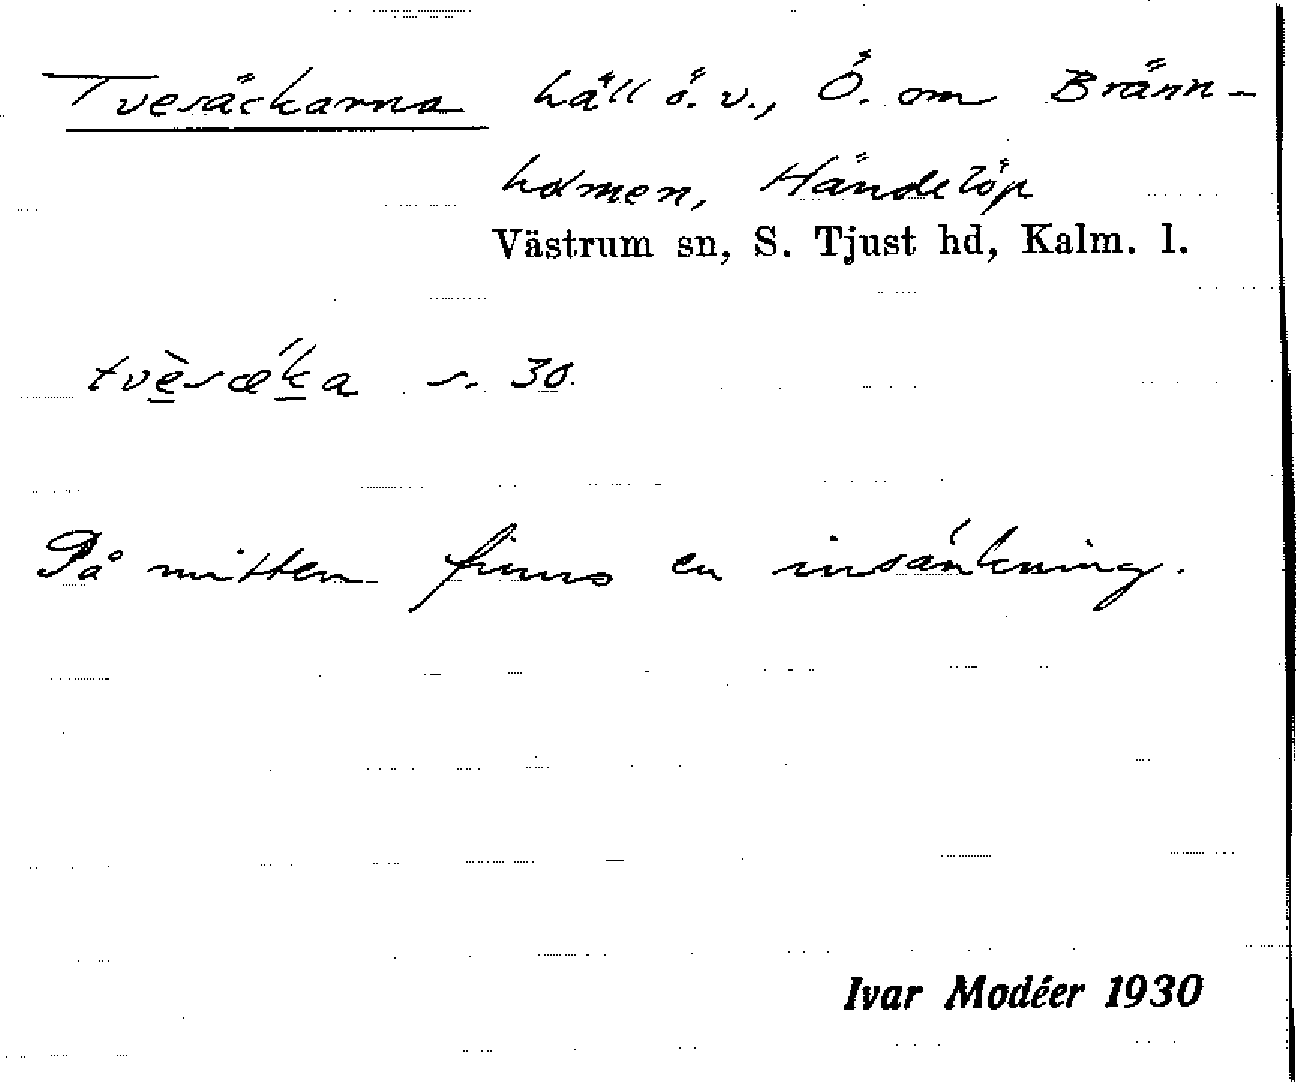 Tvesäckarna häll ö. v., Ö. om Bränn-
holmen, Händelöp
Västrum sn, S. Tjust hd, Kalm. l.
tvèsæ´ka s. 30.
På mitten finns en insänkning.
Ivar Modéer 1930